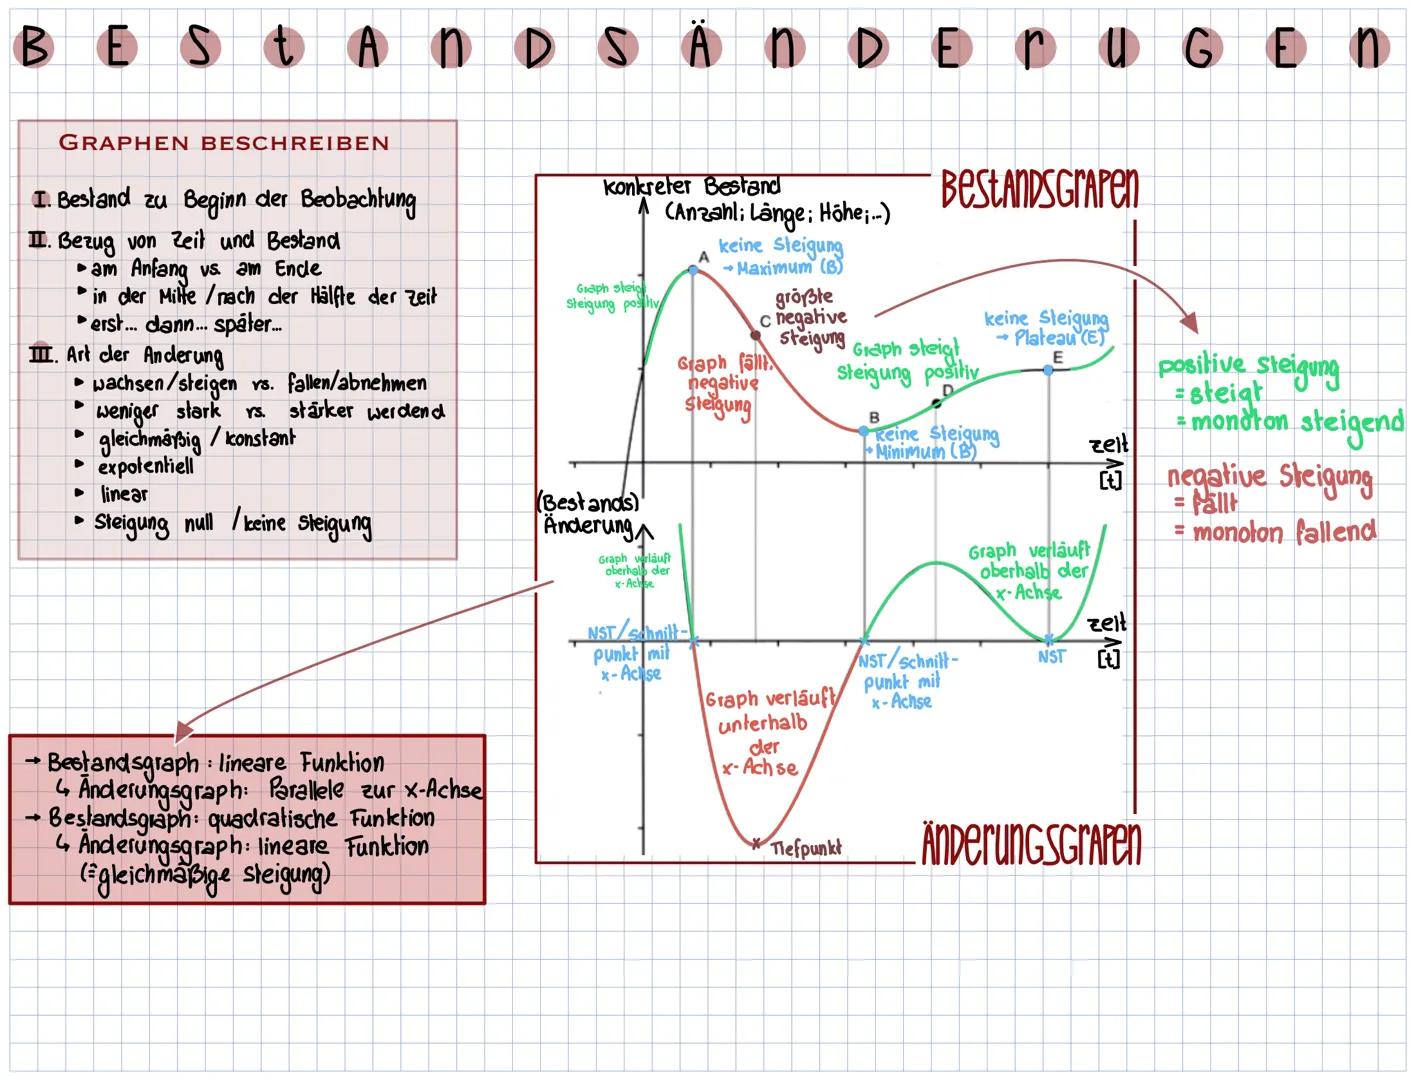 BEStAnDSÄnDErUGEn
GRAPHEN BESCHREIBEN
I. Bestand zu Beginn der Beobachtung
II. Bezug von Zeit und Bestand
▸ am Anfang vs. am Ende
▸ in der Mitte / nach der Hälfte der Zeit
▸ erst... dann... später...
III. Art der Änderung
▸ wachsen/steigen vs. fallen/abnehmen
▸ weniger stark vs. stärker werdend
▸ gleichmäßig / konstant
▸ expotentiell
▸ linear
▸ Steigung null / keine steigung
BEStANDSGRAPEN
konkreter Bestand
(Anzahl; Länge; Höhe;...)
A
keine Steigung
→ Maximum (B)
Graph steigt
Steigung positiv
C
größte
negative
Steigung
Graph fällt,
negative
Steigung
Graph steigt
Steigung positiv
D
keine Steigung
→ Plateau (E)
E
B
keine Steigung
→ Minimum (B)
zeit
[t]
positive steigung
= steigt
= monoton steigend
negative Steigung
= fällt
= monoton fallend
(Bestands)
Änderung
Graph verläuft
oberhalb der
x-Achse
NST/schnitt-
punkt mit
x-Achse
Graph verläuft
unterhalb
der
x-Achse
Tiefpunkt
NST/schnitt-
punkt mit
x-Achse
Graph verläuft
oberhalb der
x-Achse
NST
zeit
[t]
ÄNDERUNGSGRAPEN
→ Bestandsgraph: lineare Funktion
↳ Änderungsgraph: Parallele zur x-Achse
→ Bestandsgraph: quadratische Funktion
↳ Änderungsgraph: lineare Funktion
(≙ gleichmäßige steigung)